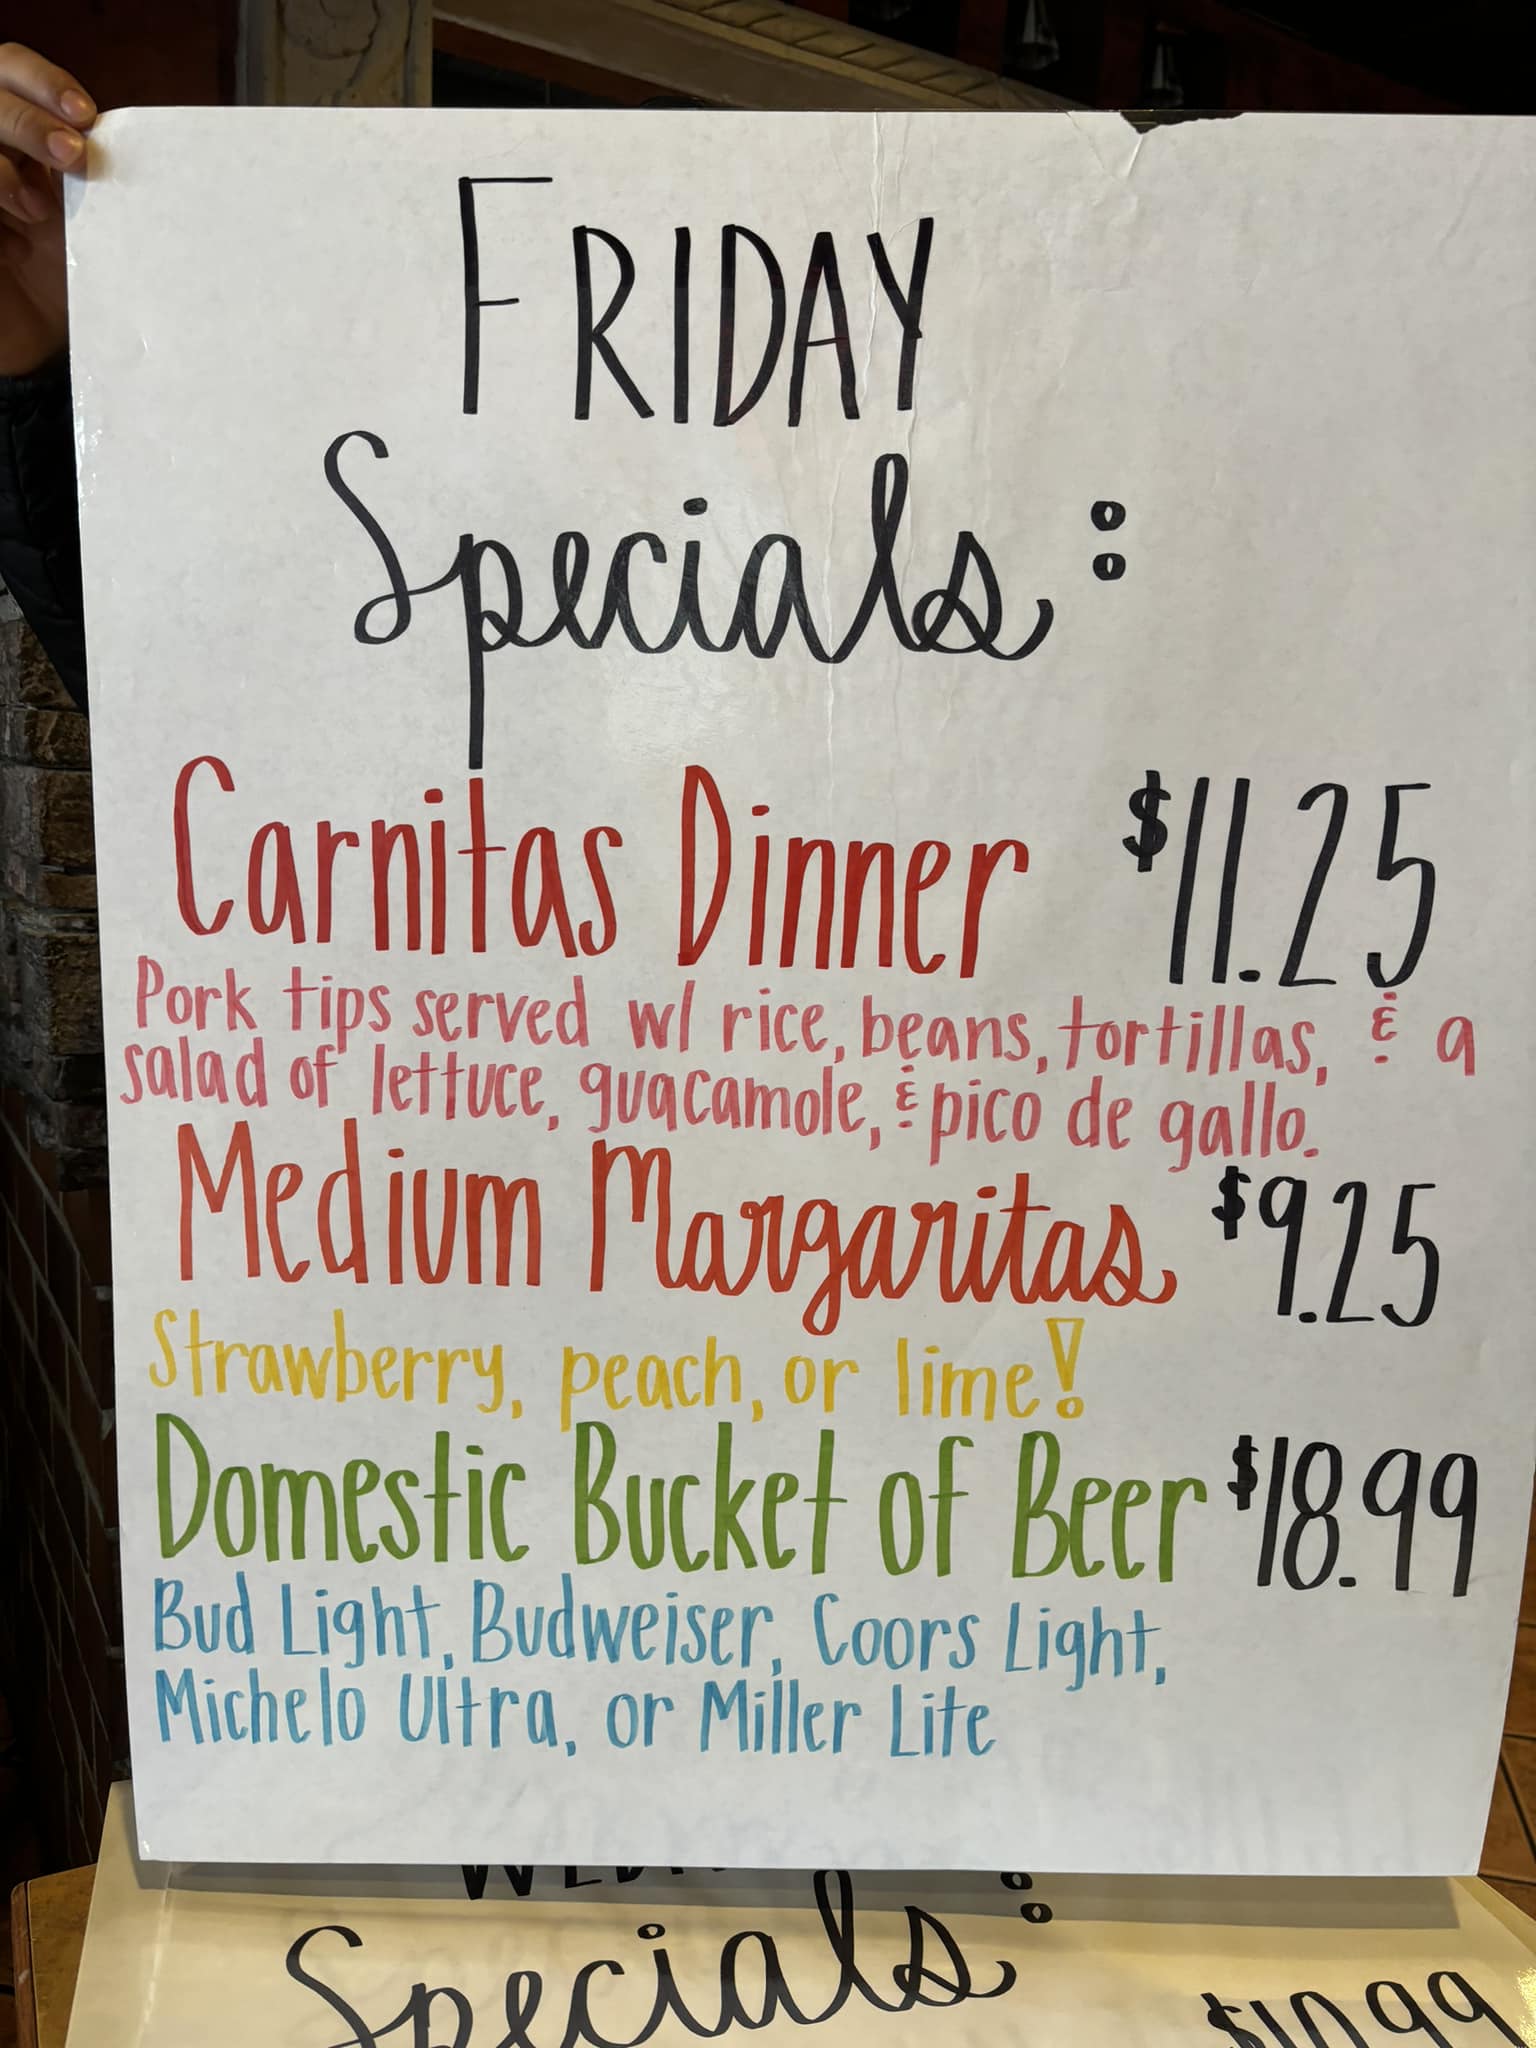 FRIDAY
Specials:
Carnitas Dinner $11.25
Pork tips served w/ rice, beans, tortillas, & a
salad of lettuce, guacamole, & pico de gallo.
Medium Margaritas $9.25
Strawberry, peach, or lime!
Domestic Bucket of Beer $18.99
Bud Light, Budweiser, Coors Light,
Michelo Ultra, or Miller Lite
Specials:
$10.99